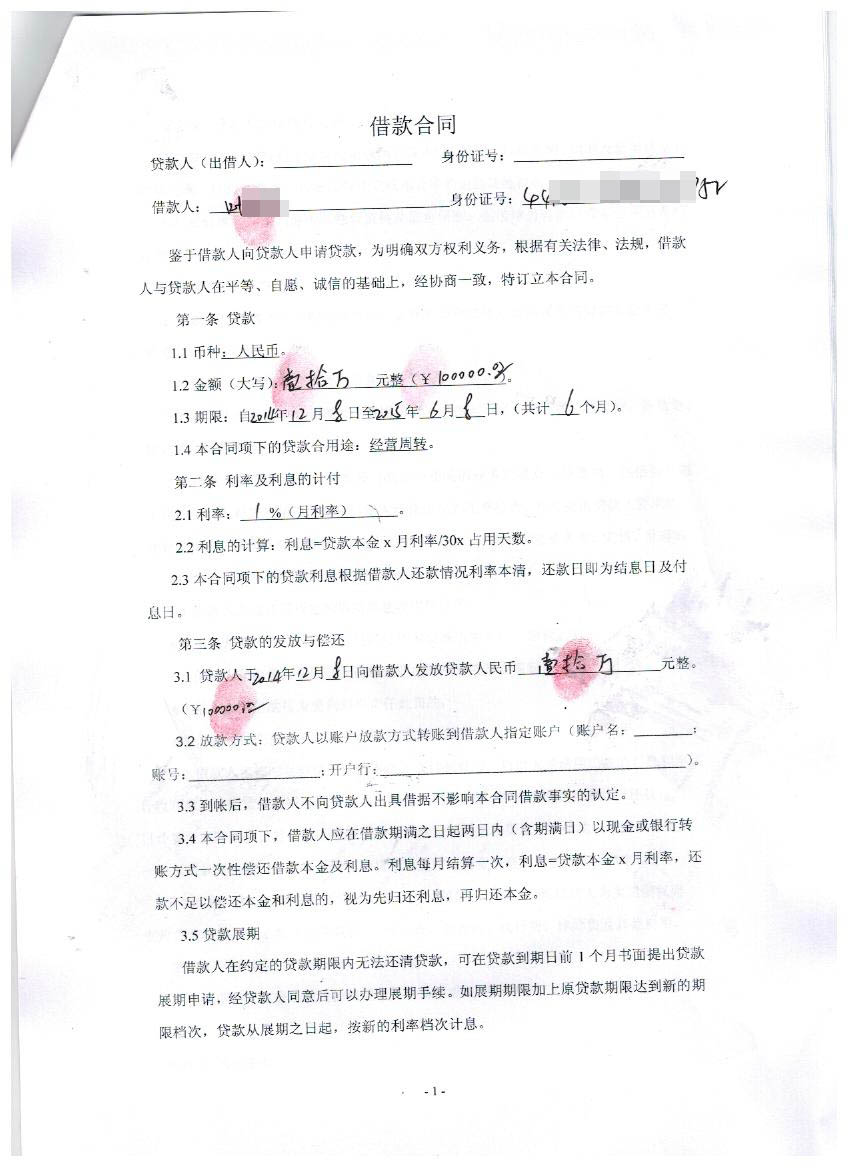 借款合同
贷款人（出借人）：____________ 身份证号：____________
借款人：____________ 身份证号：44
鉴于借款人向贷款人申请贷款，为明确双方权利义务，根据有关法律、法规，借款
人与贷款人在平等、自愿、诚信的基础上，经协商一致，特订立本合同。
第一条 贷款
1.1 币种：人民币。
1.2 金额（大写）：壹拾万 元整（￥100000.00）。
1.3 期限：自2014年12月8日至2015年6月8日，（共计 6个月）。
1.4 本合同项下的贷款合用途：经营周转。
第二条 利率及利息的计付
2.1 利率： 1 %（月利率） 。
2.2 利息的计算：利息=贷款本金 x 月利率/30x 占用天数。
2.3 本合同项下的贷款利息根据借款人还款情况利率本清，还款日即为结息日及付
息日。
第三条 贷款的发放与偿还
3.1 贷款人于2014年12月8日向借款人发放贷款人民币 壹拾万 元整。
（￥100000.00
3.2 放款方式：贷款人以账户放款方式转账到借款人指定账户（账户名：_______；
账号：____________；开户行：____________）。
3.3 到账后，借款人不向贷款人出具借据不影响本合同借款事实的认定。
3.4 本合同项下，借款人应在借款期满之日起两日内（含期满日）以现金或银行转
账方式一次性偿还借款本金及利息。利息每月结算一次，利息=贷款本金 x 月利率，还
款不足以偿还本金和利息的，视为先归还利息，再归还本金。
3.5 贷款展期
借款人在约定的贷款期限内无法还清贷款，可在贷款到期日前 1 个月书面提出贷款
展期申请，经贷款人同意后可以办理展期手续。如展期期限加上原贷款期限达到新的期
限档次，贷款从展期之日起，按新的利率档次计息。
- 1 -